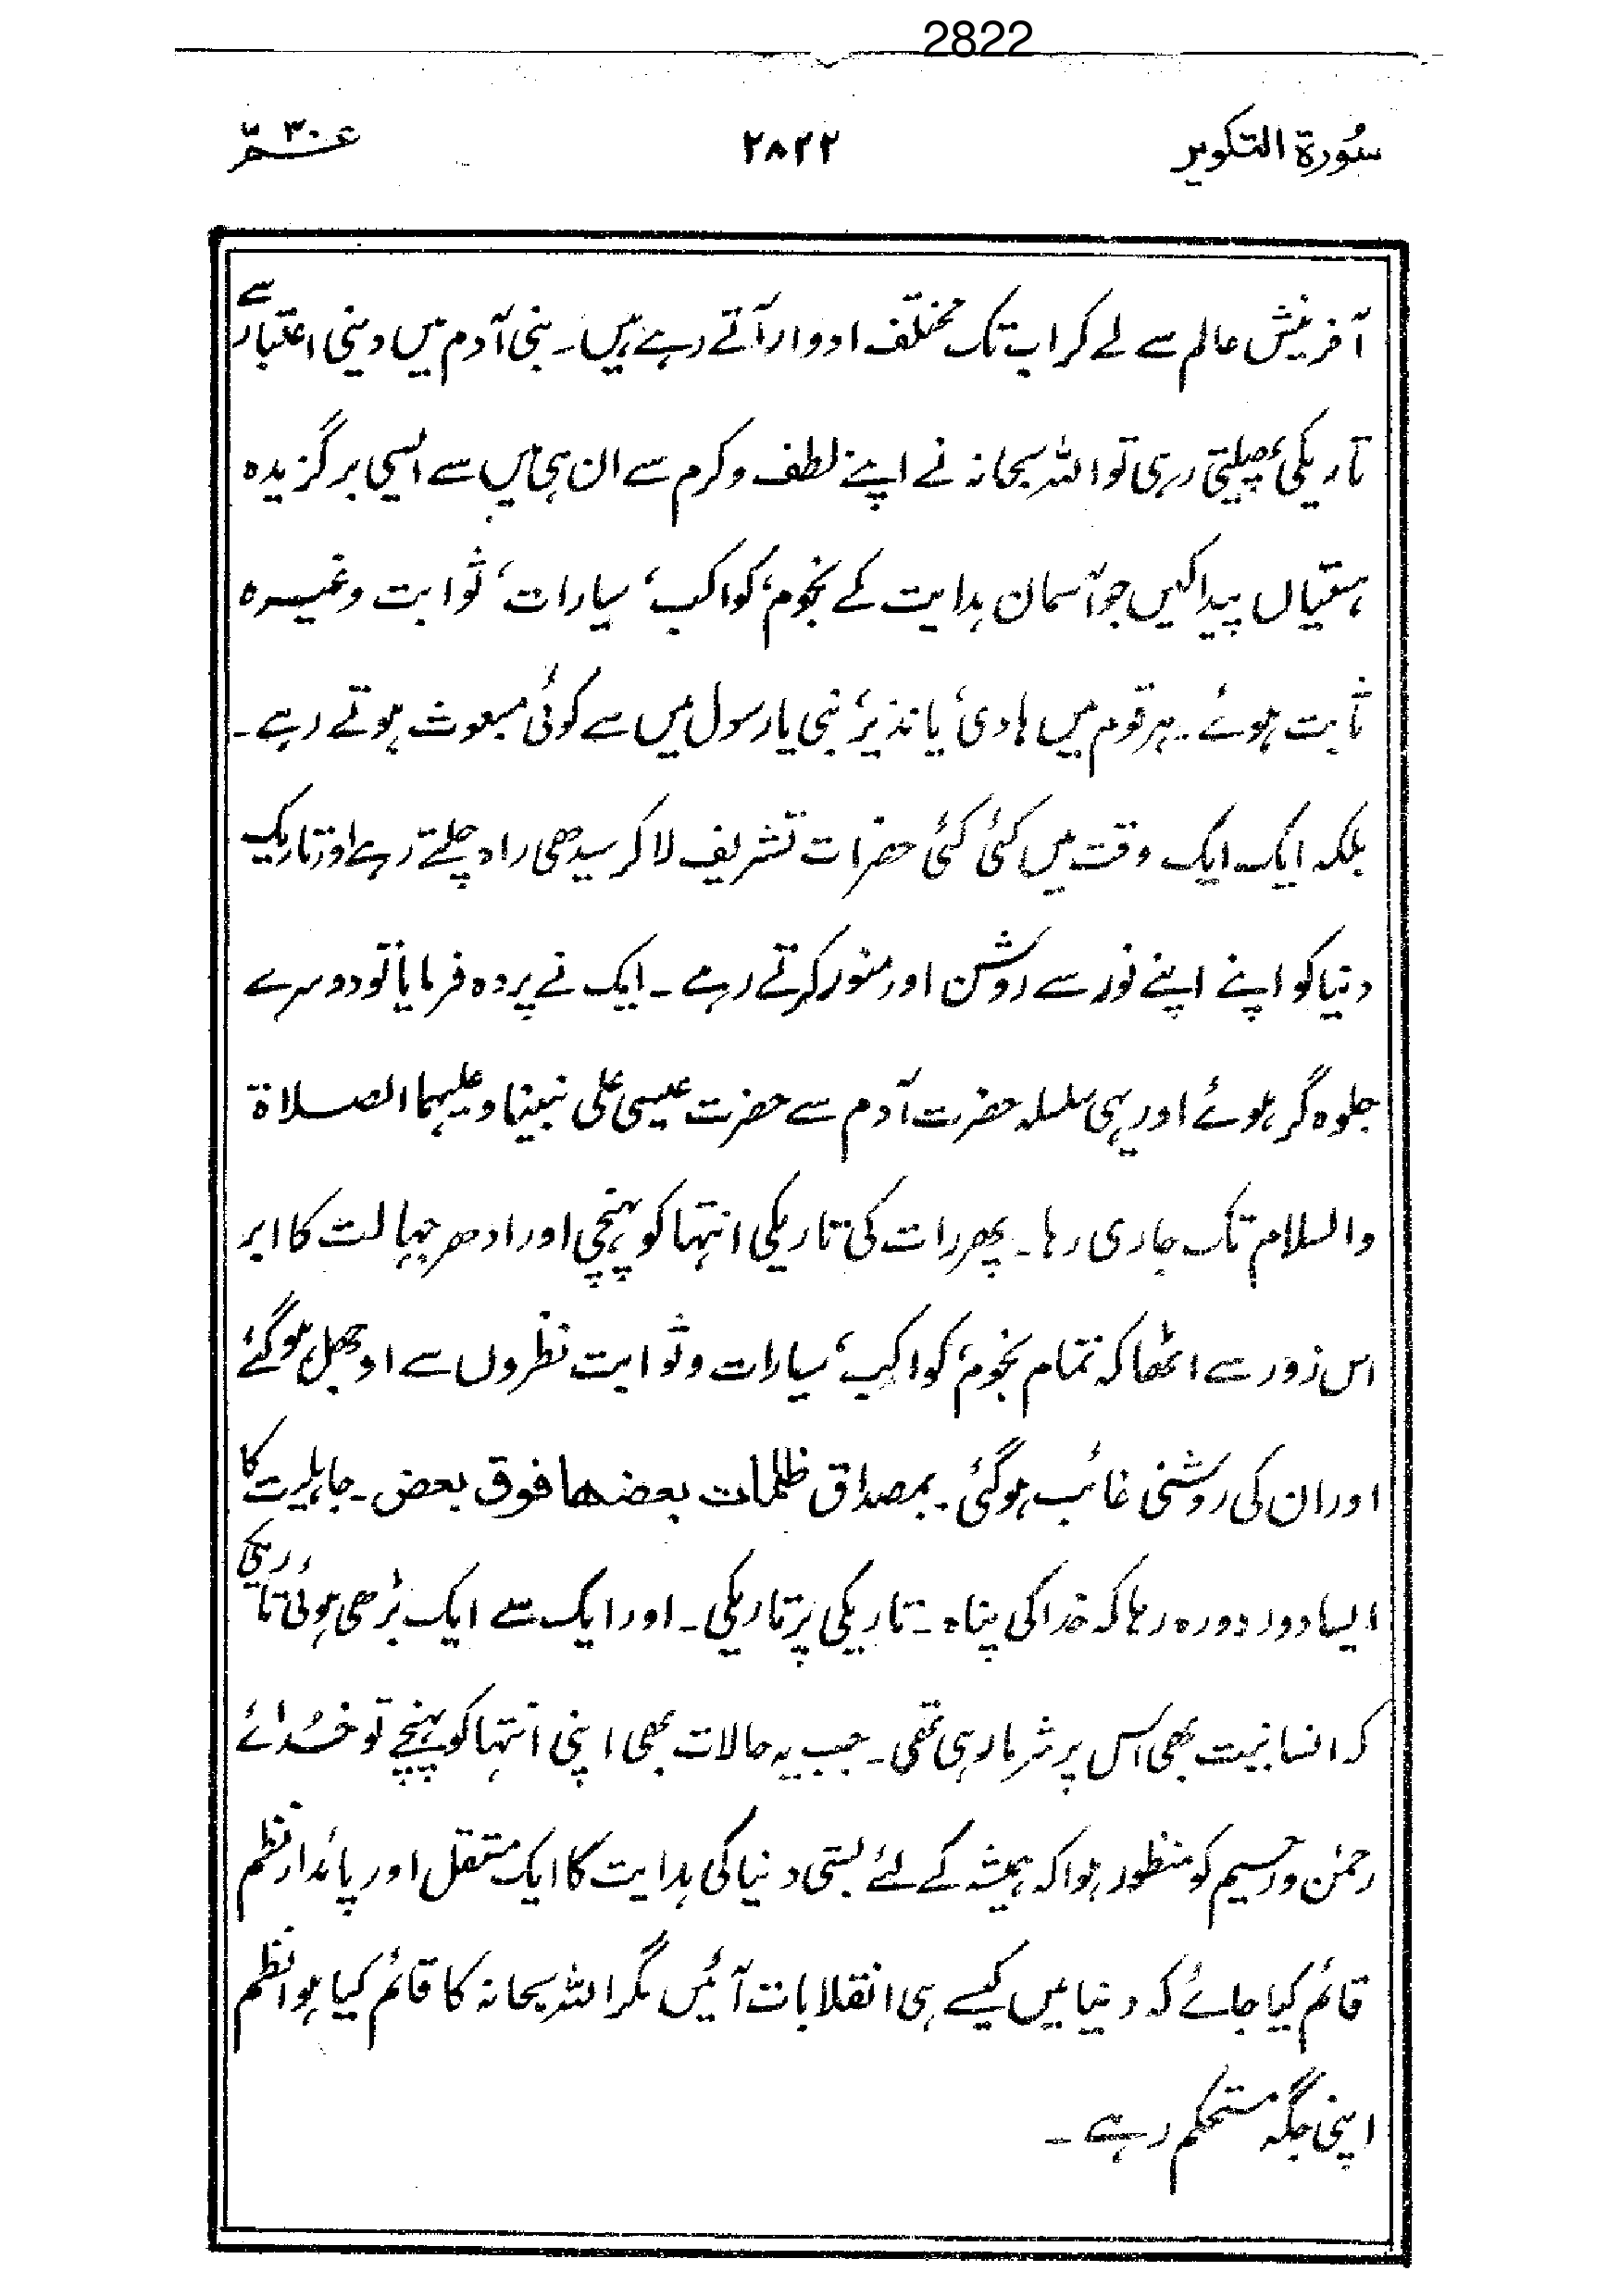 2822
سُورۃ التکویر ۲۸۲۲ عمّ ۳۰
آفرینش عالم سے لے کر اب تک مختلف ادوار آتے رہے ہیں۔ بنی آدم میں دینی اعتبار سے
تاریکی پھیلتی رہی تو اللہ سبحانہ نے اپنے لطف و کرم سے ان ہی میں سے ایسی برگزیدہ
ہستیاں پیدا کیں جو آسمان ہدایت کے نجوم، کواکب، سیارات، ثوابت وغیرہ
ثابت ہوئے۔ ہر قوم میں ہادی، یا نذیر، نبی یا رسول میں سے کوئی مبعوث ہوتے رہے۔
بلکہ ایک ایک وقت میں کئی کئی حضرات تشریف لاکر سیدھی راہ چلتے رہے اور تاریک
دنیا کو اپنے اپنے نور سے روشن اور منور کرتے رہے۔ ایک نے پردہ فرمایا تو دوسرے
جلوہ گر ہوئے اور یہی سلسلہ حضرت آدم سے حضرت عیسی علی نبینا و علیہما الصلاۃ
والسلام تک جاری رہا۔ پھر رات کی تاریکی انتہا کو پہنچی اور ادھر جہالت کا ابر
اس زور سے اٹھا کہ تمام نجوم، کواکب، سیارات و ثوابت نظروں سے اوجھل ہوگئے
اور ان کی روشنی غائب ہوگئی۔ بمصداق ظلمات بعضھا فوق بعض۔ جاہلیت کا
ایسا دور دورہ رہا کہ خدا کی پناہ۔ تاریکی پر تاریکی۔ اور ایک سے ایک بڑھی ہوئی تاریکی
کہ انسانیت بھی اس پر شرما رہی تھی۔ جب یہ حالات بھی اپنی انتہا کو پہنچے تو خُدائے
رحمٰن و رحیم کو منظور ہوا کہ ہمیشہ کے لئے بستی دنیا کی ہدایت کا ایک مستقل اور پائدار نظم
قائم کیا جائے کہ دنیا میں کیسے ہی انقلابات آئیں مگر اللہ سبحانہ کا قائم کیا ہوا نظم
اپنی جگہ مستحکم رہے۔